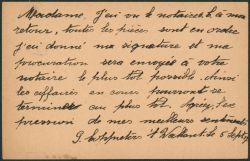 Madame, J'ai vu le notaire à mon
retour, toutes les pièces sont en ordre
j'ai donné ma signature et ma
procuration sera envoyée à votre
notaire le plus tôt possible. Ainsi
les affaires en cours pourront se
terminer au plus tôt. Agréez, l'ex
pression de mes meilleurs sentiments
St Vallant le 5 Sept